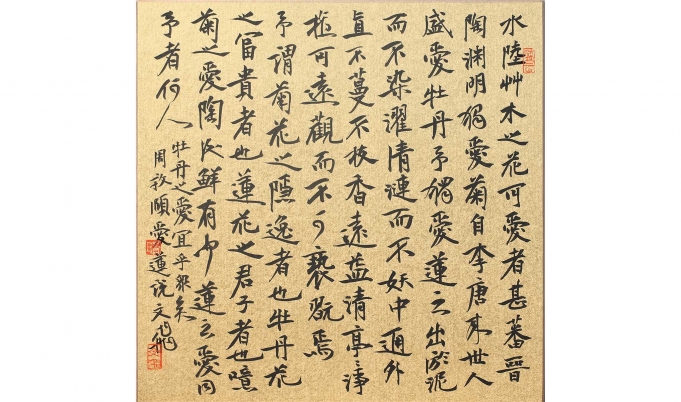 水陸艸木之花可愛者甚蕃晉
陶渊明獨愛菊自李唐来世人
盛愛牡丹予獨愛蓮之出淤泥
而不染濯清漣而不妖中通外
直不蔓不枝香遠益清亭〻淨
植可遠觀而不可褻翫焉
予謂菊花之隱逸者也牡丹花
之富貴者也蓮花之君子者也噫
菊之愛陶後鮮有聞蓮之愛同
予者何人
牡丹之愛宜乎衆矣
周敦頤愛蓮説